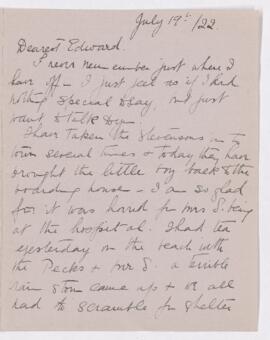 July 19th/22.
Dearest Edward.
I never remember just where I
leave off - I just feel as if I had
nothing special to say, and just
want to talk
I have taken the Stevensons in to
town several times & today they have
brought the little boy back to the
boarding house - I am so glad
for it was horrid for Mrs S. being
at the hospital. I had tea
yesterday on the beach with
the Pecks & Mr S. a terrible
rain storm came up & we all
had to scramble for shelter